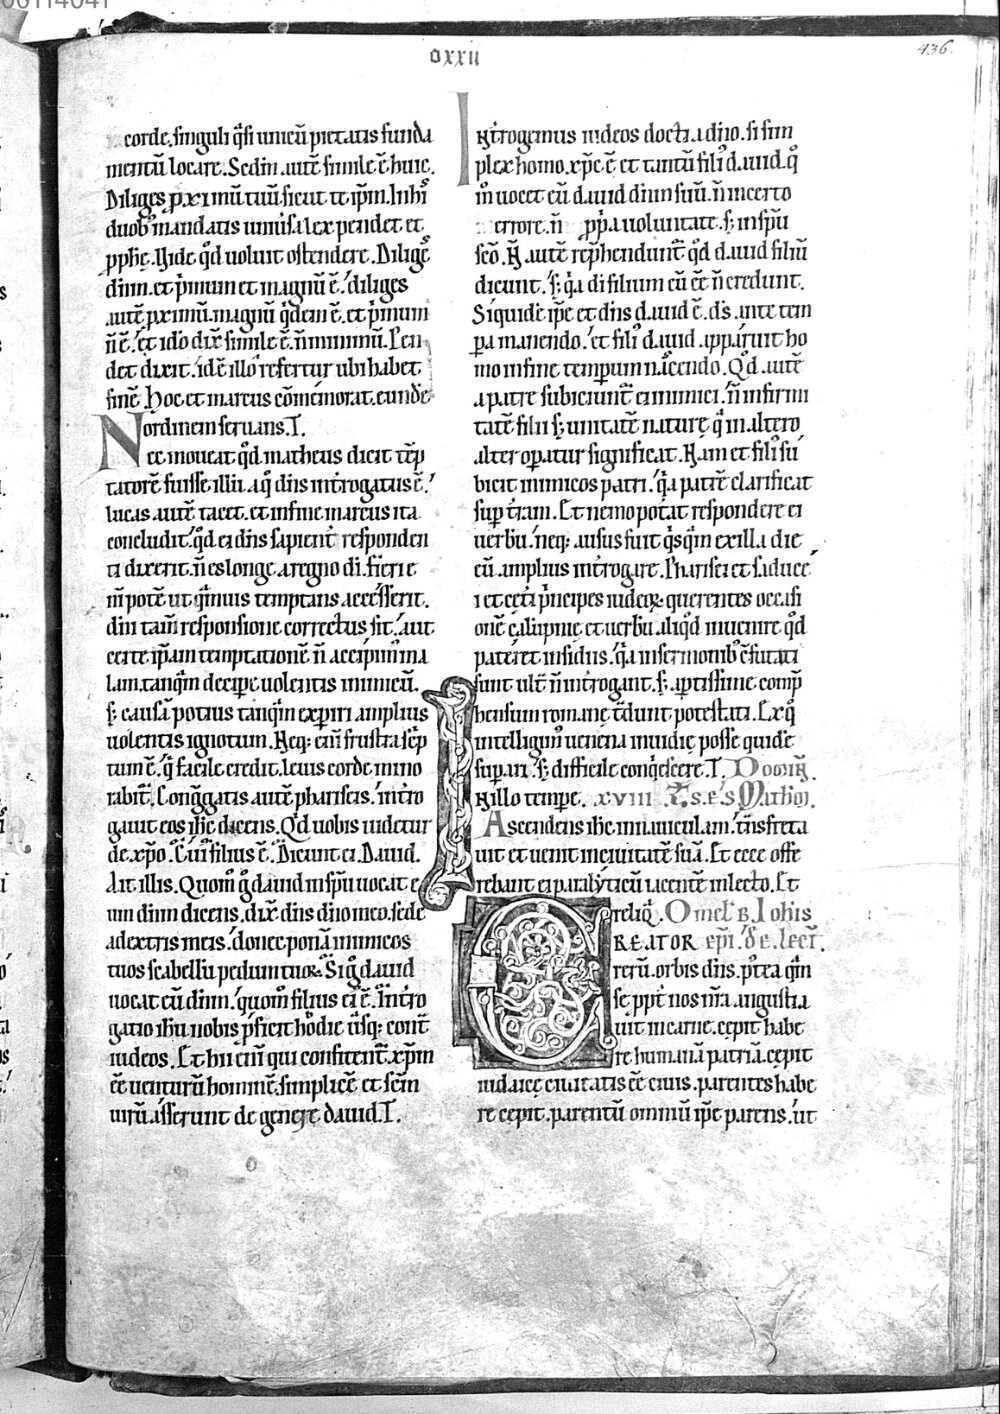 oxxii
436.
corde. singuli q̄si unicū pietatis funda
mentū locare. Sed in autē simile ē huic.
Diliges p̱ximū tuū sicut te ip̄m. In hiˀ
duobˀ mandatis uniūsa lex pendet et
ꝓphẹ. Vide q̊d uoluit ostendere. Diligeˢ
dn̄m. et p̓mum et magnū ē. diliges
autē ꝓximū. magnū q̓dem ē. et p̓mum
n̄ ē. et ido dix̄ simile ē. n̄ minimū. Pen
det dixit. idē illo refertur ubi habet
finē. Hoc et marcus cōmemorat. eunde
ordinem seruans. T.
Nec moueat q̊d matheus dicit tēp
tatorē fuisse illū a q̊ dn̄s int̓rogatus ē.
lucas autē tacet. et in fine marcus ita
concludit. q̊d ei dn̄s sapient̓ responden
ti dixerit. n̄ es longe a regno dī. Fieri e
ni potē ut q̄muis temptans accesserit.
dn̄i tam̄ responsione correctus sit. aut
certe ip̄am temptationē n̄ accipimˀ ma
lam. tanq̄m decipe uolentis inimicū.
s; causā potius tanq̄m experiri amplius
uolentis ignotum. Neq; enī frustra sc̓p
tum ē. q̓ facile credit. leuis corde mino
rabit̄. Congġatis autē phariseis. int̓ro
gauit eos ih̄c dicens. Q̊d uobis uidetur
de xp̄o. Cuiˀ filius ē. Dicunt ei. Dauid.
Ait illis. Quom̊ ḡ dauid in sp̄u uocat e
um dn̄m dicens. dix̄ dn̄s dn̄o meo. sede
a dextris meis. donec ponā inimicos
tuos scabellū pedum tuoꝝ. Si ḡ dauid
uocat eū dn̄m. quom̊ filiusˀ eiˀ ē. Int̓ro
gatio ih̄u nobis p̓ficit hodie usq; cont̄
iudeos. Et hii enī qui confitent̄ xp̄m
eē uenturū hominē simplicē et sc̄m
uirū asserunt de genere dauid. T.
Int̓rogemus iudeos docti a dn̄o. si sim
plex homo. xp̄c ē et tantū filiˀ dauid. q̊
m̊ uocet eū dauid dn̄m suū. n̄ incerto
errore. n̄ ꝓp̓a uoluntate. s; in sp̄u
sc̄o. N̄ autē rep̓hendunt̄ q̊d dauid filiū
dicunt. s; q̓a dī filium eū eē n̄ credunt.
Siquidē ip̄e et dn̄s dauid ē. d̄s ante tem
p̱a manendo. et filiˀ dauid apparuit ho
mo in fine temp̱um nascendo. Q̊d autē
a patre subiciunt̄ ei inimici. n̄ infirmi
tatē filii s; unitatē naturẹ q̄ in altero
alter op̱atur significat. Nam et filiˀ sū
bicit inimicos patri. q̓a patrē clarificat
sup̱ t̓ram. Et nemo pot̓at respondere ei
uerbū. neq; ausus fuit q̓sq̄m ex illa die
eū amplius int̓rogare. Pharisei et saduce
i et cet̓i p̓ncipes iudeoꝝ querentes occasi
onē calūpnie et uerbū aliq̊d inuenire q̊d
pateret insidiis. q̓a in sermonibˀ cˀfutati
sunt ult̄ n̄ int̓rogant. s; apertissime comp̓
hensum romanẹ t̓dunt potestati. Ex q̊
intelligimˀ uenena inuidiẹ posse quidē
sup̱ari. s; difficile conq̓escere. T. Domī
In illo tempe. xviii T. s. e. s Mathm.
Ascendens ih̄c in nauiculam. t̄nsfreta
uit et uenit in ciuitatē suā. Et ecce offe
rebant ei paralyticū iacentē in lecto. Et
reliq̄. Omel B. Iohis
CREATOR ep̄i. de lect̄.
rerū. orbis dn̄s. p̓tea q̄m
se ppt̓ nos nr̄a angustia
uit in carne. cepit habe
re humanā patriā. cepit
iudaicẹ ciuitatis eē ciuis. parentes habe
re cepit. parentū omniū ip̄e parens. ut